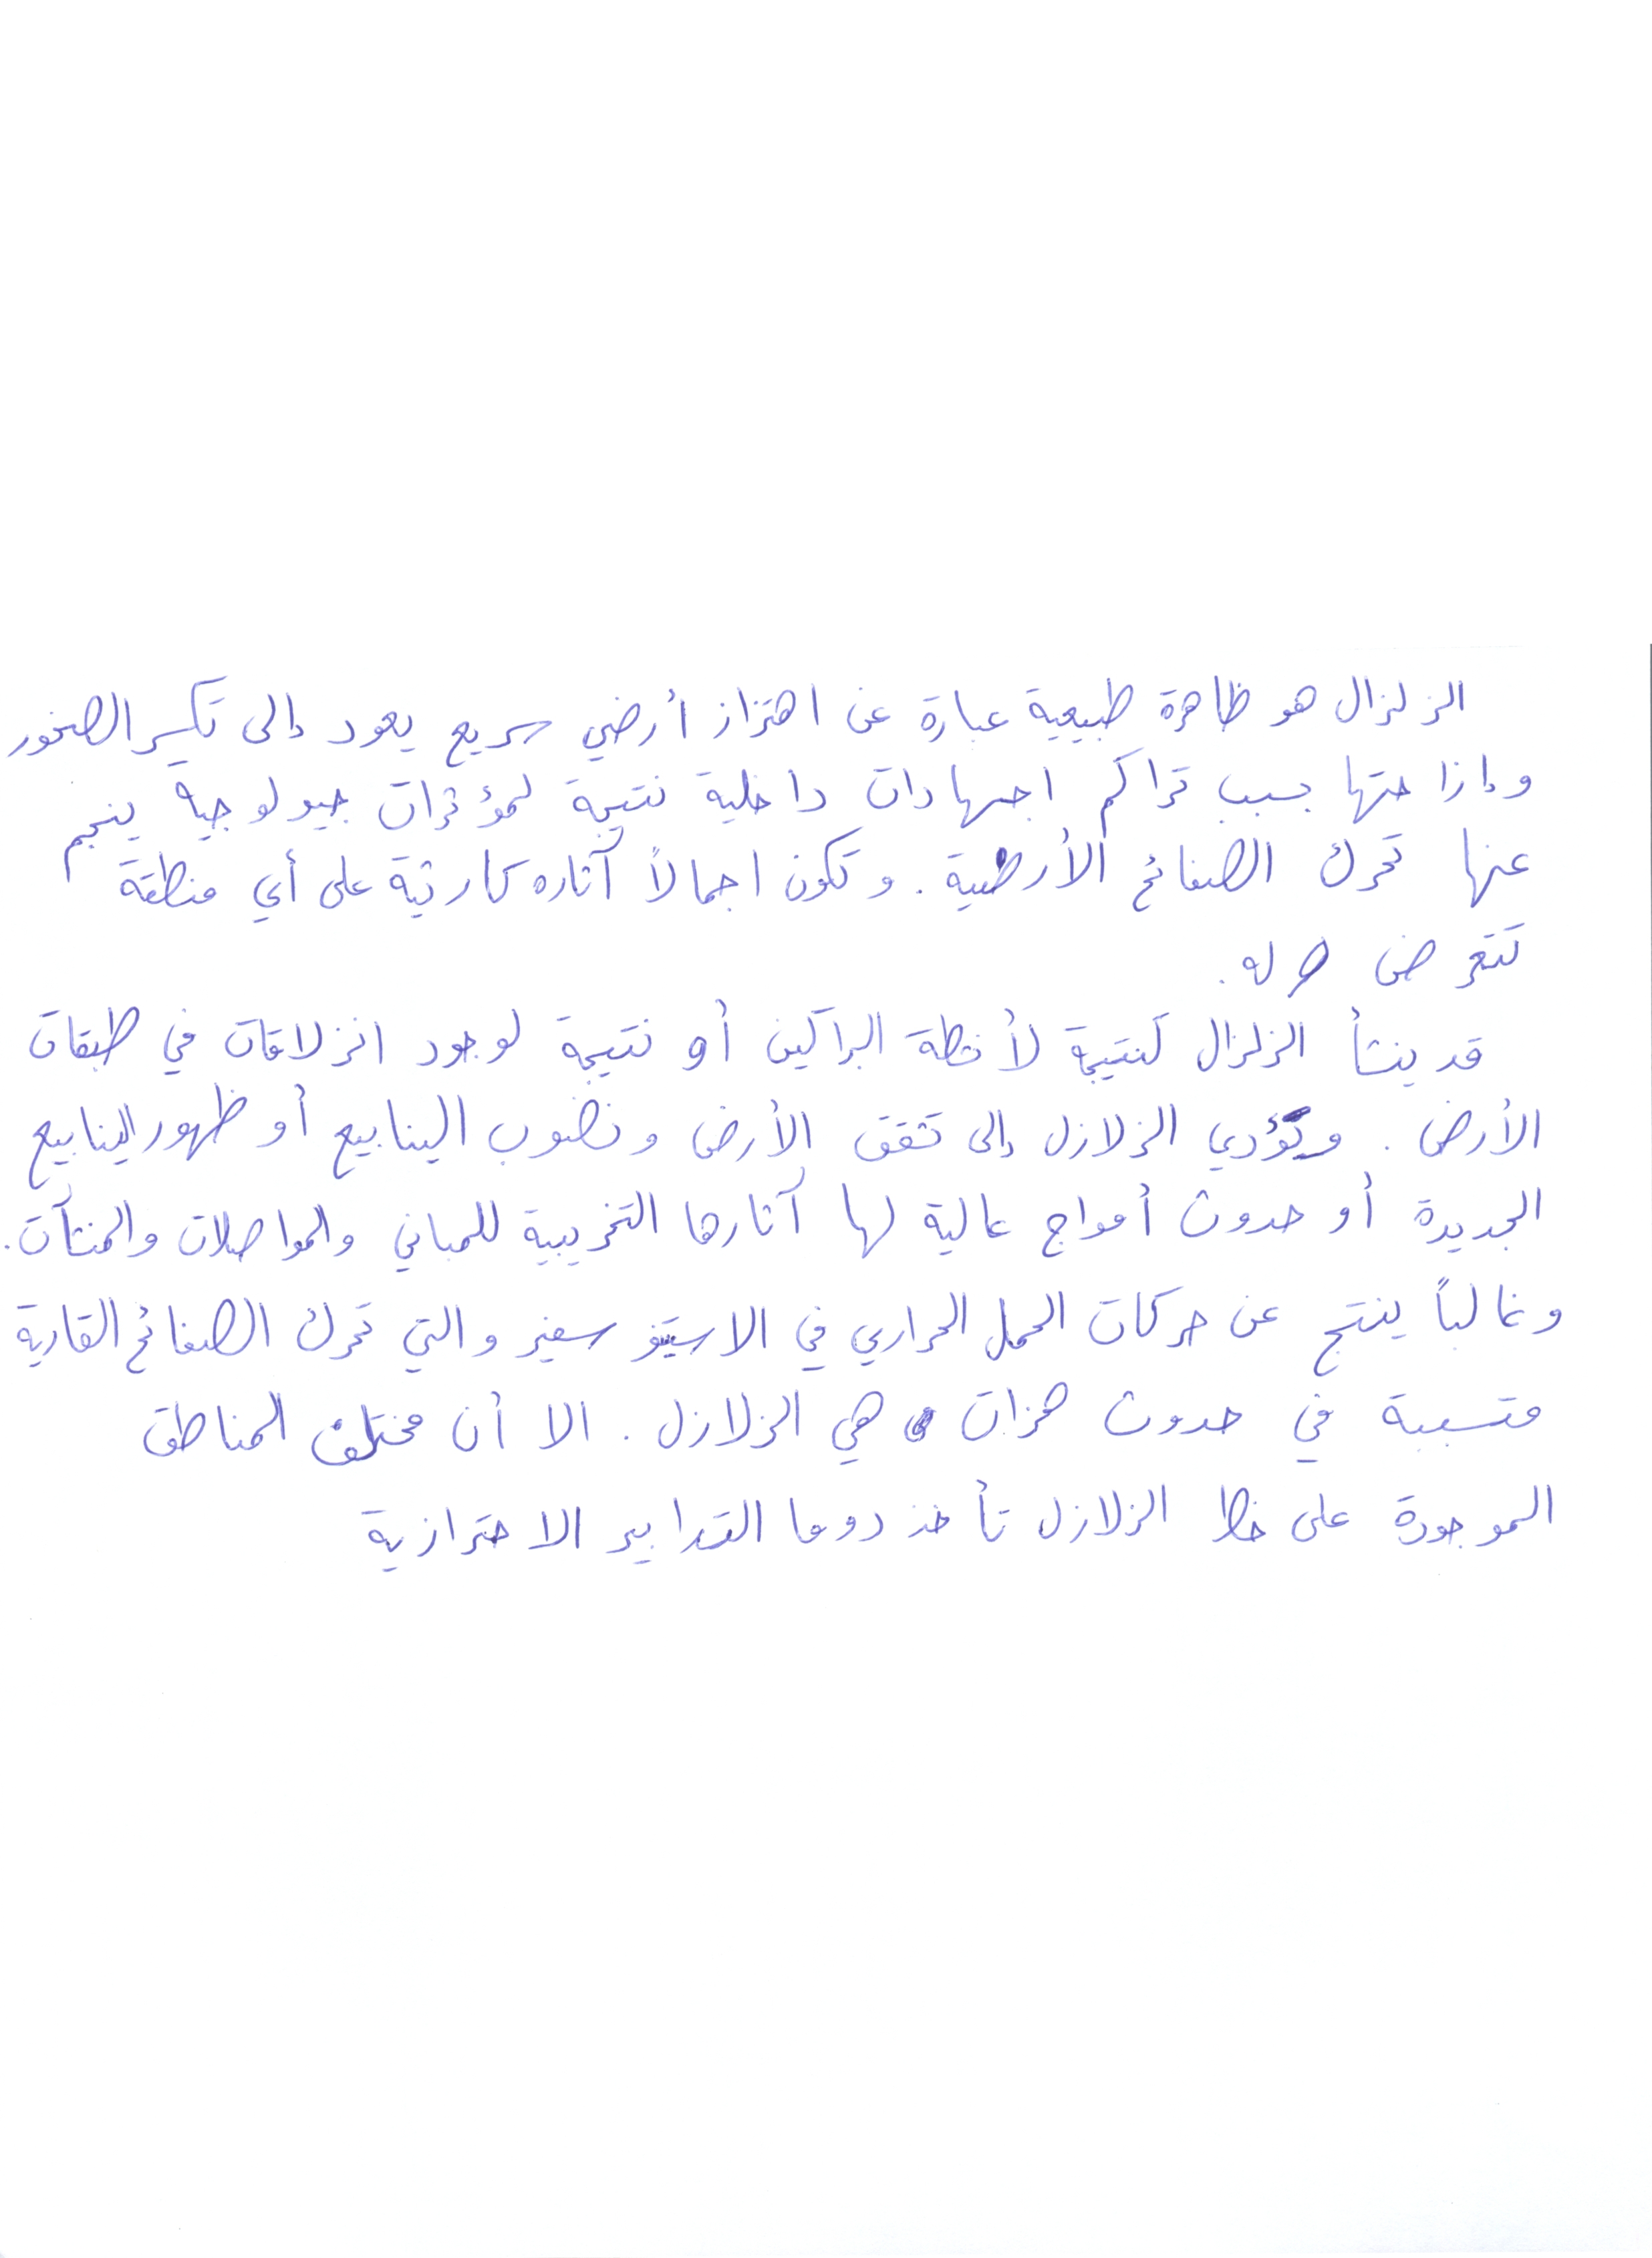 الزلزال هو ظاهرة طبيعية عبارة عن اهتزاز أرضي سريع يعود إلى تكسير الصخور
وإزاحتها بسبب تراكم اجهادات داخلية نتيجة لمؤثرات جيولوجية ينجم
عنها تحرك الصفائح الأرضية. وتكون اجمالاً آثاره كارثية على أي منطقة
تتعرض له.
قد ينشأ الزلزال كنتيجة لأنشطة البراكين أو نتيجة لوجود انزلاقات في طبقات
الأرض. وتؤدي الزلازل إلى تشقق الأرض ونضوب الينابيع أو ظهور الينابيع
الجديدة أو حدوث أمواج عالية لها آثارها التخريبية للمباني والمواصلات والمنشآت.
وغالباً ينتج عن حركات الحمل الحراري في الاستينوسفير والتي تحرك الصفائح القارية
متسببة في حدوث هزات هي الزلازل. الا أن مختلف المناطق
الموجودة على خط الزلازل تأخذ دوما التدابير الاحترازية